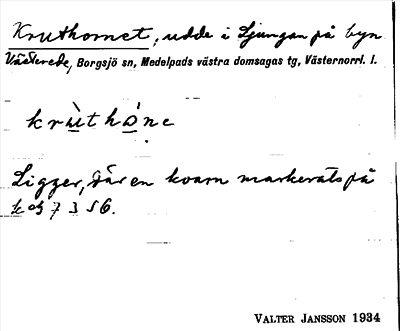 Kruthornet, udde i Ljungan på byn
Västerede, Borgsjö sn, Medelpads västra domsagas tg, Västernorrl. l.
krùthò̩ṇe
Ligger, där en kvarn markerats på
k og 7 3 56.
VALTER JANSSON 1934